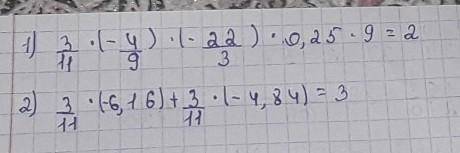 1) 3/11 · (- 4/9) · (- 22/3) · 0,25 · 9 = 2
2) 3/11 · (-6,16) + 3/11 · (- 4,84) = 3